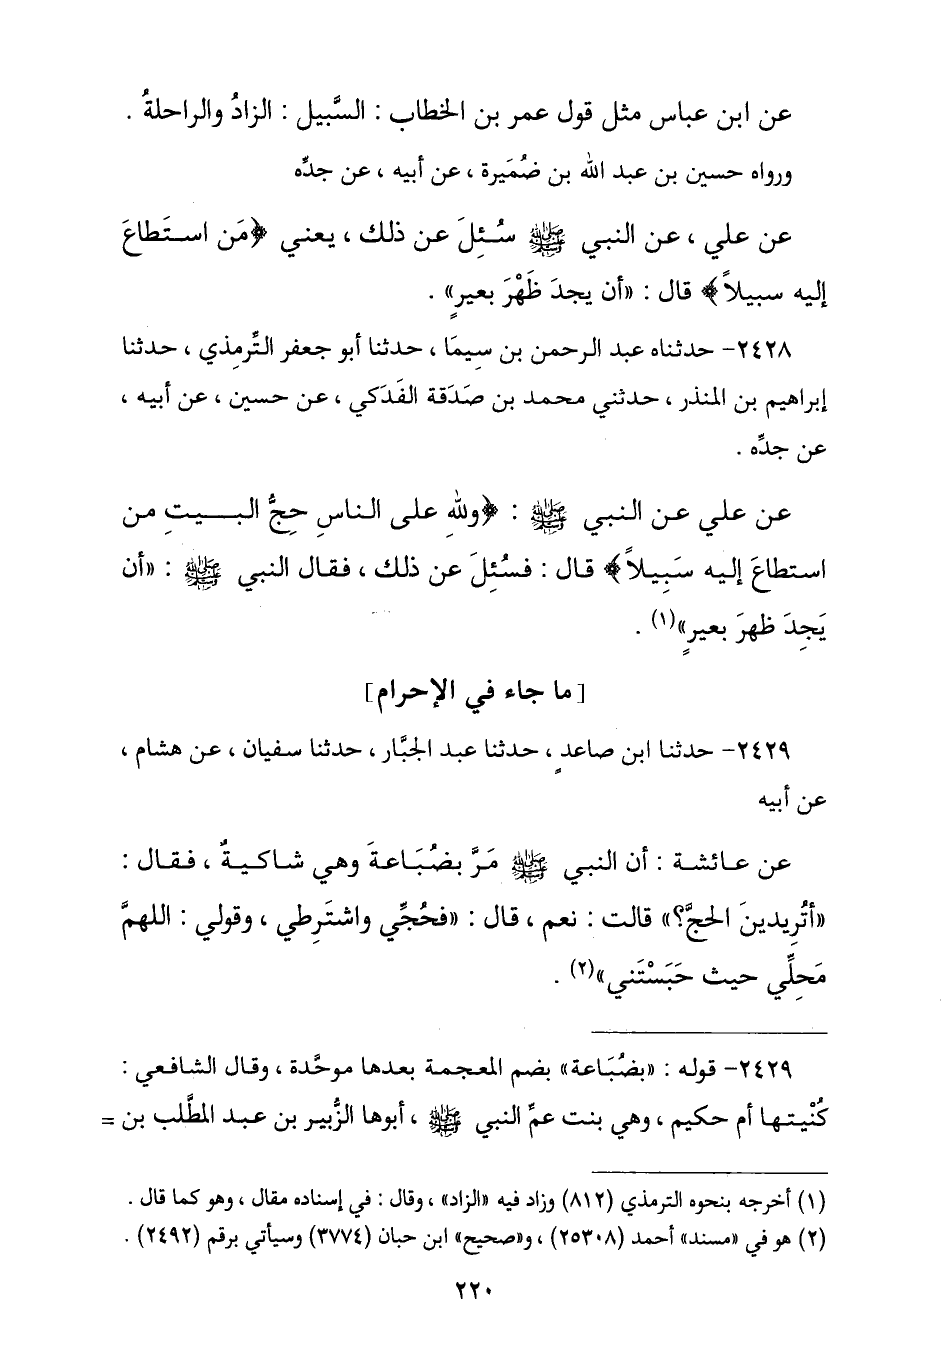 عن ابن عباس مثل قول عمر بن الخطاب : السَّبيل : الزادُ والراحلةُ .
ورواه حسين بن عبد الله بن ضُمَيرة ، عن أبيه ، عن جدِّه
عن علي ، عن النبي ﷺ سُئِلَ عن ذلك ، يعني ﴿مَن استَطاعَ
إليه سبيلاً﴾ قال : «أن يجدَ ظَهْرَ بعيرٍ» .
٢٤٢٨- حدثناه عبد الرحمن بن سِيمَا ، حدثنا أبو جعفر التِّرمذي ، حدثنا
إبراهيم بن المنذر ، حدثني محمد بن صَدَقة الفَدَكي ، عن حسين ، عن أبيه ،
عن جدِّه .
عن علي عن النبي ﷺ : ﴿ولِلّهِ على الناسِ حِجُّ البيتِ من
استطاعَ إليه سَبِيلاً﴾ قال : فسُئِلَ عن ذلك ، فقال النبي ﷺ : «أن
يَجِدَ ظهرَ بعيرٍ»(١) .
[ما جاء في الإحرام]
٢٤٢٩- حدثنا ابن صاعدٍ ، حدثنا عبد الجبَّار ، حدثنا سفيان ، عن هشام ،
عن أبيه
عن عائشة : أن النبي ﷺ مَرَّ بضُبَاعةَ وهي شاكيةٌ ، فقال :
«أتُرِيدينَ الحجَّ؟» قالت : نعم ، قال : «فحُجِّي واشتَرِطي ، وقولي : اللهمَّ
مَحِلِّي حيث حَبَسْتَني»(٢) .
٢٤٢٩- قوله : «بضُبَاعة» بضم المعجمة بعدها موحَّدة ، وقال الشافعي :
كُنْيتها أم حكيم ، وهي بنت عمِّ النبي ﷺ ، أبوها الزُّبير بن عبد المطَّلب بن =
(١) أخرجه بنحوه الترمذي (٨١٢) وزاد فيه «الزاد» ، وقال : في إسناده مقال ، وهو كما قال .
(٢) هو في «مسند» أحمد (٢٥٣٠٨) ، و«صحيح» ابن حبان (٣٧٧٤) وسيأتي برقم (٢٤٩٢) .
٢٢٠